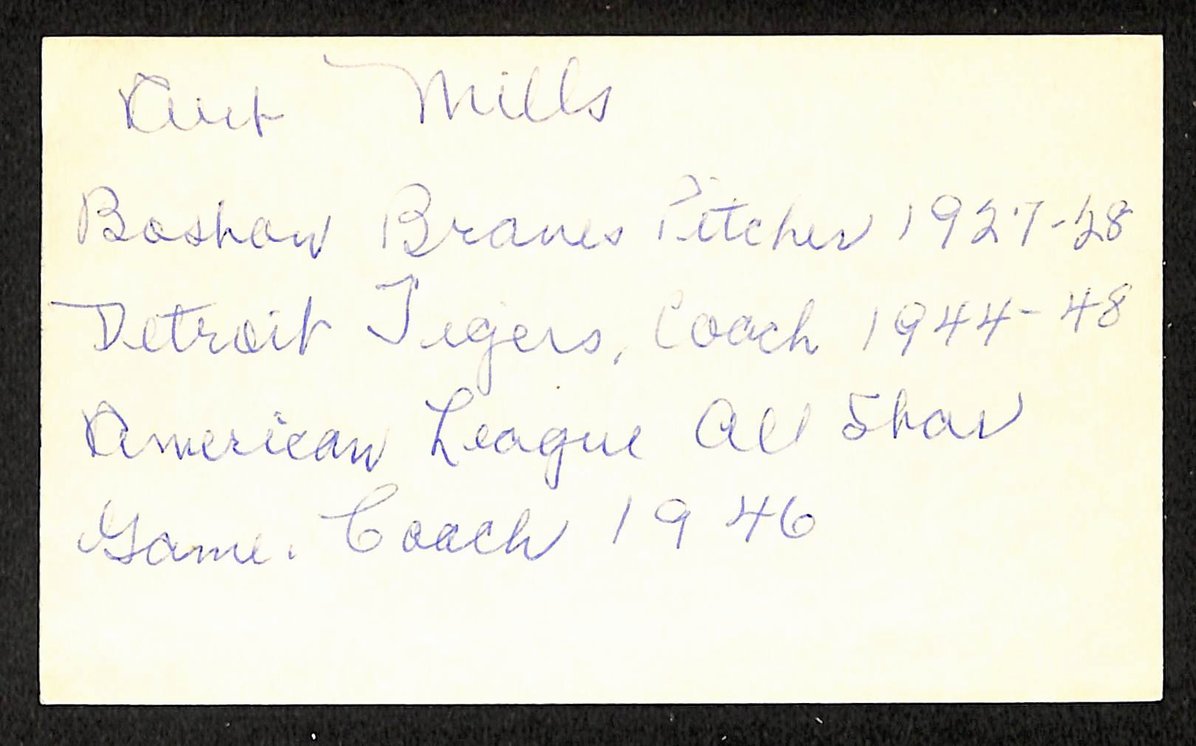 Art Mills
Boston Braves Pitcher 1927-28
Detroit Tigers, Coach 1944-48
American League All Star
Game. Coach 1946